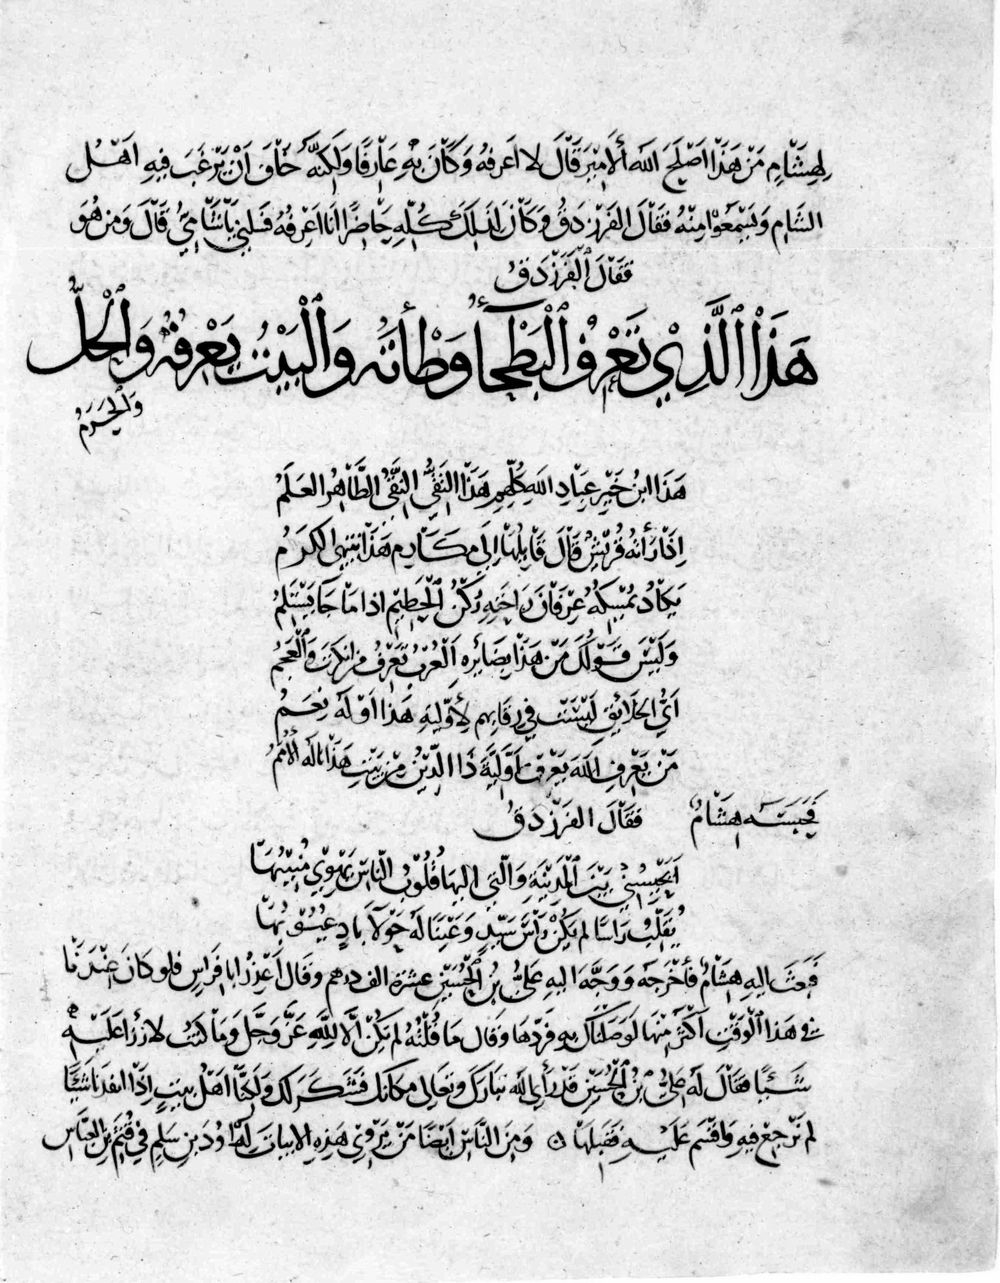 لهشام من هذا اصلح الله الامير قال لا اعرفه وكان به عارفا ولكنه خاف ان يرغب فيه اهل
الشام ويسمعوا منه فقال الفرزدق وكان لذلك كله حاضرا انا اعرفه فسلني يا شامي قال ومن هو
فقال الفرزدق
هَذَا الَّذِي تَعْرِفُ الْبَطْحَآءُ وَطْأَتَهُ وَالْبَيْتُ يَعْرِفُهُ وَالْحِلُّ
وَالْحَرَمُ
هذا ابن خير عباد الله كلهم هذا التقي النقي الطاهر العلم
اذا رأته قريش قال قايلها الى مكارم هذا ينتهي الكرم
يكاد يمسكه عرفان راحته ركن الحطيم اذا ما جا يستلم
وليس قولك من هذا بضائره العرب تعرف من انكرت والعجم
اي الخلائق ليست في رقابهم لأولية هذا اوله نعم
من يعرف الله يعرف اولية ذا الدين من بيت هذا ناله الأمم
فحبسه هشام فقال الفرزدق
ايحبسني بين المدينة والتي اليها قلوب الناس يهوي منيبها
يقلب راسا لم يكن رأس سيد وعينا له حولا باد عيوبها
فبعث اليه هشام فأخرجه ووجه اليه علي بن الحسين عشرة الف درهم وقال اعذر ابا فراس فلو كان عندنا
في هذا الوقت اكثر منها لوصلناك به فردها وقال ما قلته لم يكن الا لله عز وجل وما كنت لارزا عليه
شيئا فقال له علي بن الحسين قد رأى الله تبارك وتعالى مكانك فشكر لك ولكنا اهل بيت اذا انفدنا شيئا
لم نرجع فيه واقسم عليه فقبلها ومن الناس ايضا من يروي هذه الابيات لداود بن سلم في قثم بن العباس